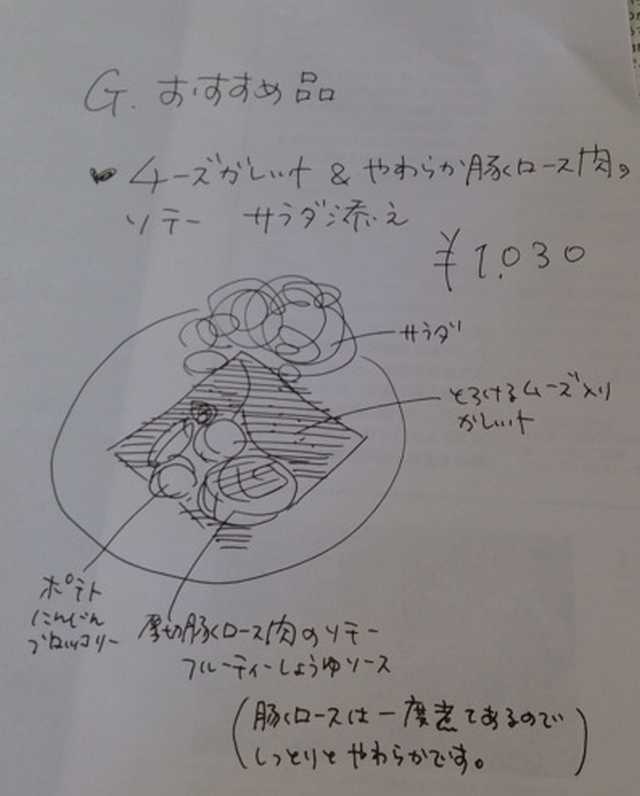 G. おすすめ品
チーズがれっト & やわらか豚ロース肉の
ソテー サラダ添え
¥1,030
サラダ
とろけるチーズ入り
がれっト
ポテト
にんじん
ブロッコリー
厚切豚ロース肉のソテー
フルーティーしょうゆソース
(豚ロースは一度煮てあるので
しっとりとやわらかです。)